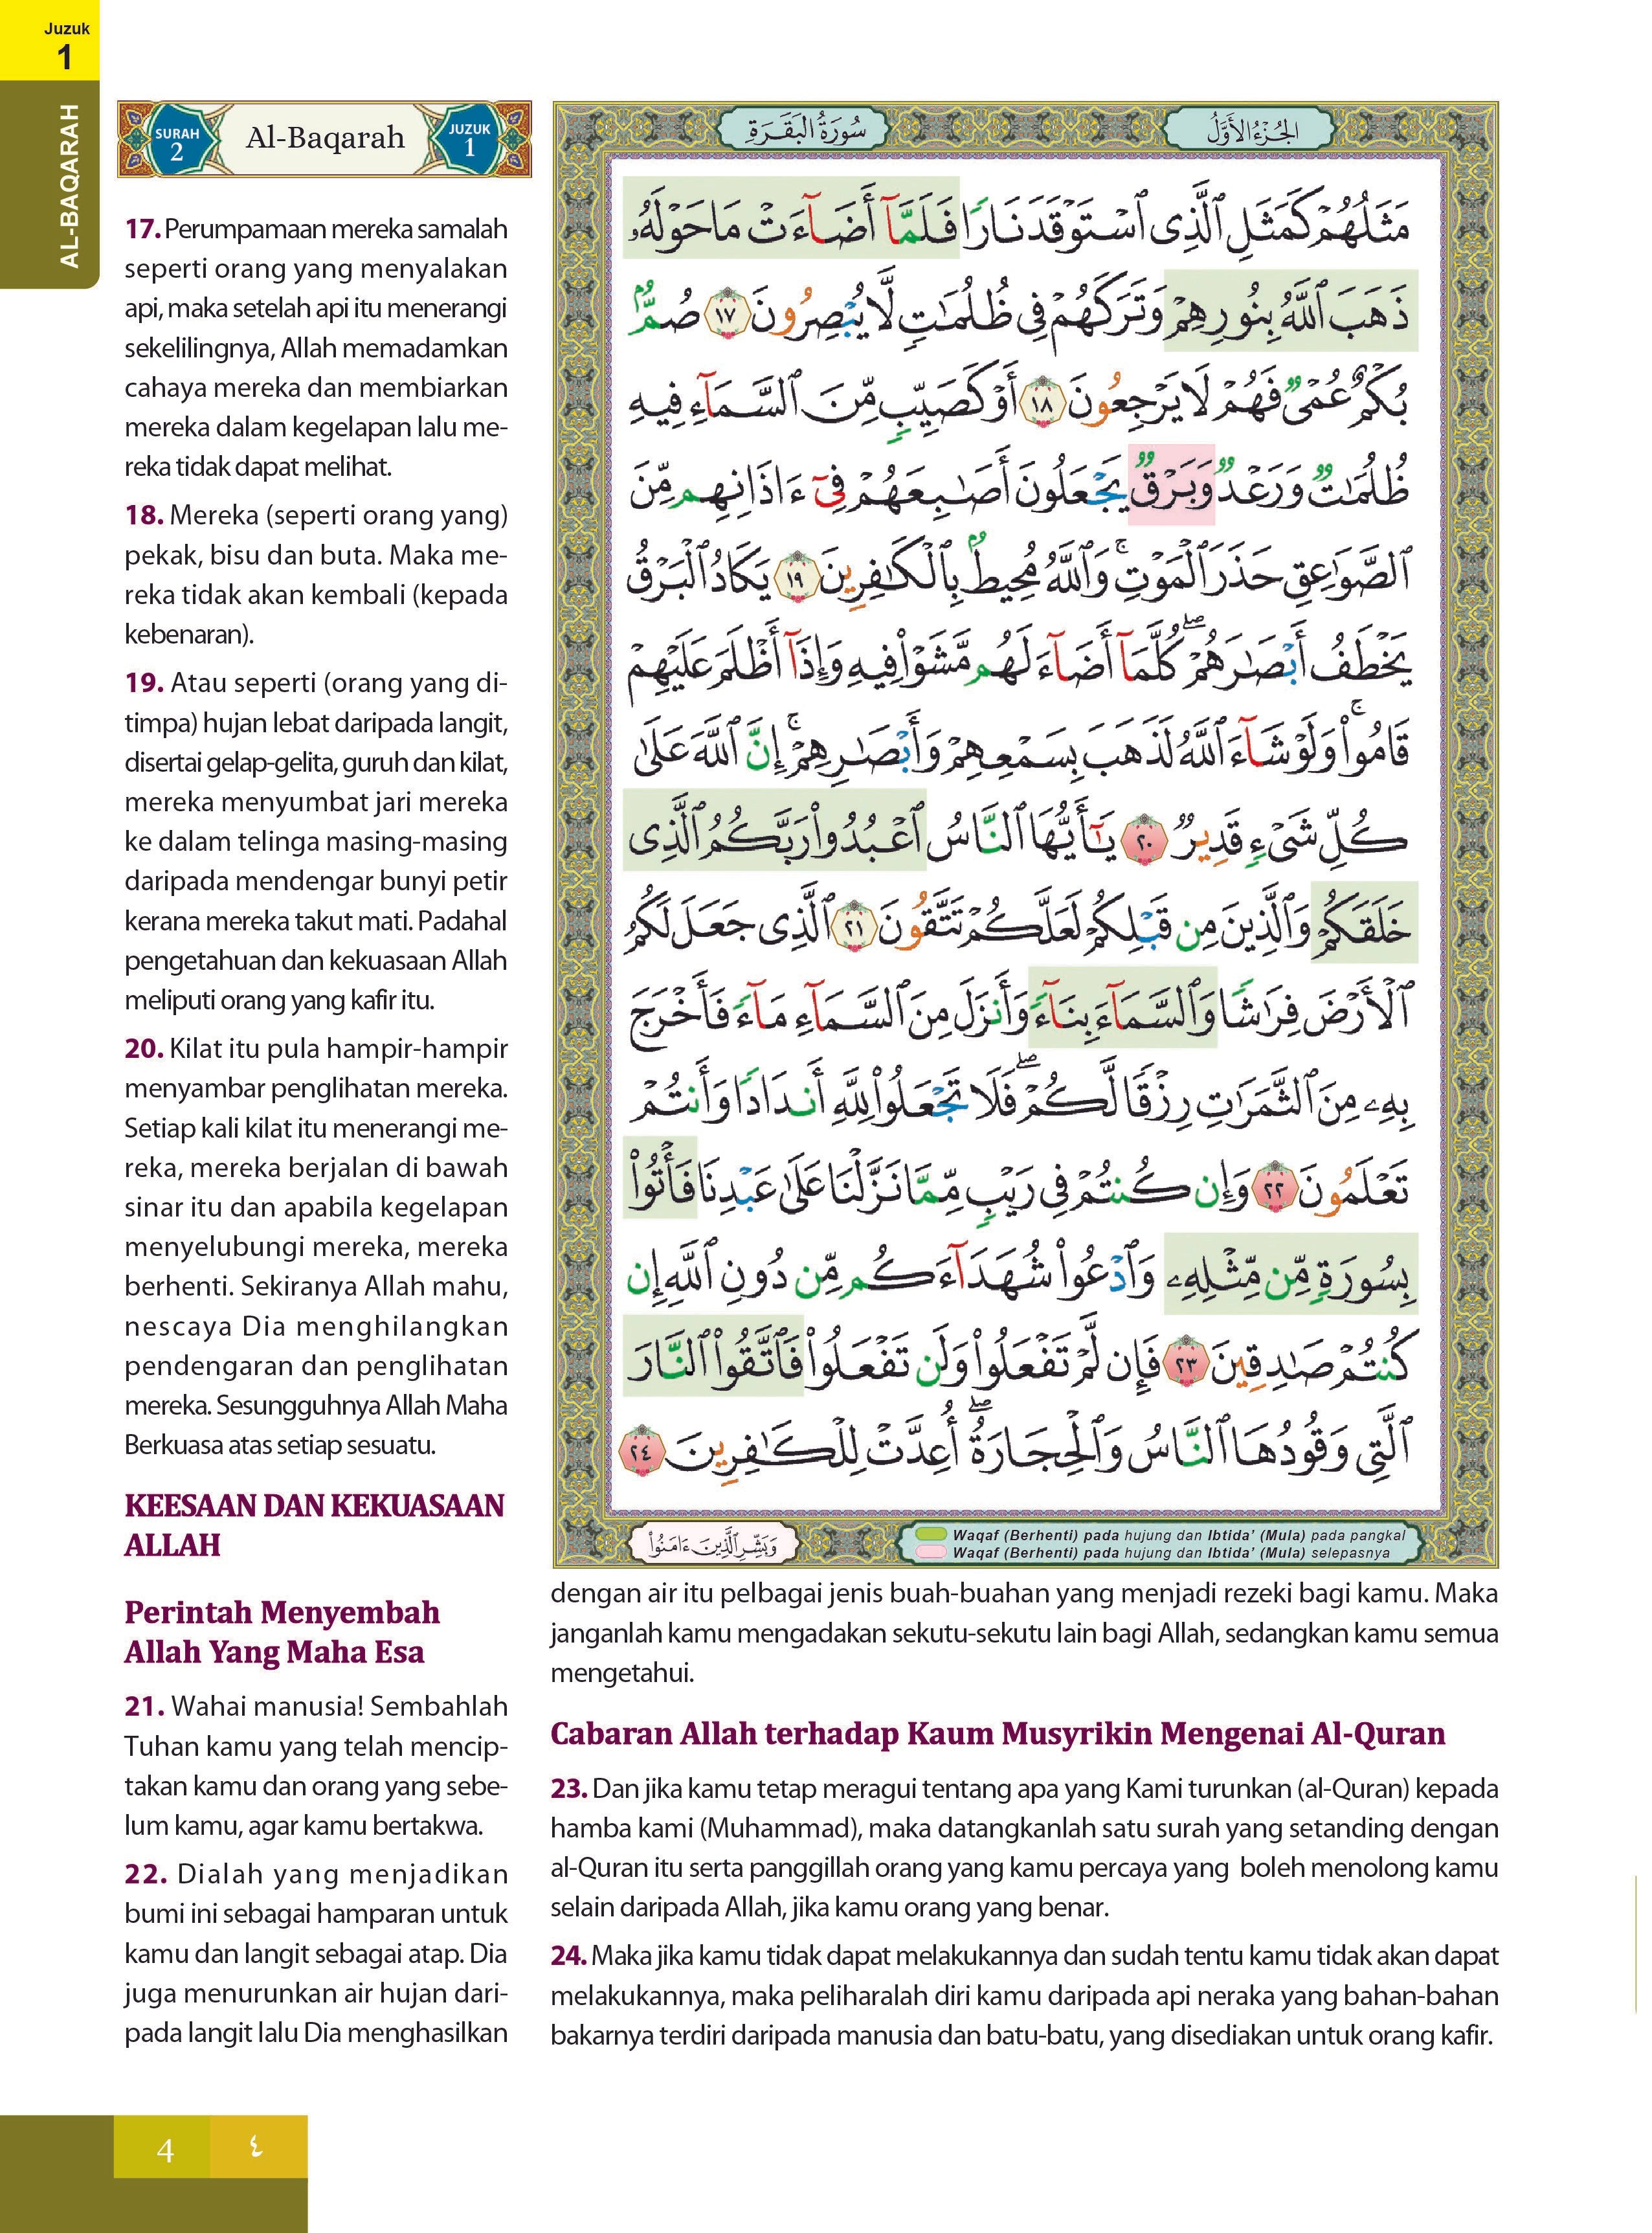 Juzuk
1
AL-BAQARAH
SURAH
2
Al-Baqarah
JUZUK
1
17. Perumpamaan mereka samalah
seperti orang yang menyalakan
api, maka setelah api itu menerangi
sekelilingnya, Allah memadamkan
cahaya mereka dan membiarkan
mereka dalam kegelapan lalu me-
reka tidak dapat melihat.
18. Mereka (seperti orang yang)
pekak, bisu dan buta. Maka me-
reka tidak akan kembali (kepada
kebenaran).
19. Atau seperti (orang yang di-
timpa) hujan lebat daripada langit,
disertai gelap-gelita, guruh dan kilat,
mereka menyumbat jari mereka
ke dalam telinga masing-masing
daripada mendengar bunyi petir
kerana mereka takut mati. Padahal
pengetahuan dan kekuasaan Allah
meliputi orang yang kafir itu.
20. Kilat itu pula hampir-hampir
menyambar penglihatan mereka.
Setiap kali kilat itu menerangi me-
reka, mereka berjalan di bawah
sinar itu dan apabila kegelapan
menyelubungi mereka, mereka
berhenti. Sekiranya Allah mahu,
nescaya Dia menghilangkan
pendengaran dan penglihatan
mereka. Sesungguhnya Allah Maha
Berkuasa atas setiap sesuatu.
KEESAAN DAN KEKUASAAN
ALLAH
Perintah Menyembah
Allah Yang Maha Esa
21. Wahai manusia! Sembahlah
Tuhan kamu yang telah mencip-
takan kamu dan orang yang sebe-
lum kamu, agar kamu bertakwa.
22. Dialah yang menjadikan
bumi ini sebagai hamparan untuk
kamu dan langit sebagai atap. Dia
juga menurunkan air hujan dari-
pada langit lalu Dia menghasilkan
الجُزْءُ الأَوَّلُ
سُورَةُ البَقَرَةِ
مَثَلُهُمْ كَمَثَلِ ٱلَّذِى ٱسْتَوْقَدَ نَارًا فَلَمَّآ أَضَآءَتْ مَا حَوْلَهُۥ
ذَهَبَ ٱللَّهُ بِنُورِهِمْ وَتَرَكَهُمْ فِى ظُلُمَٰتٍ لَّا يُبْصِرُونَ ١٧ صُمٌّۢ
بُكْمٌ عُمْىٌ فَهُمْ لَا يَرْجِعُونَ ١٨ أَوْ كَصَيِّبٍ مِّنَ ٱلسَّمَآءِ فِيهِ
ظُلُمَٰتٌ وَرَعْدٌ وَبَرْقٌ يَجْعَلُونَ أَصَٰبِعَهُمْ فِىٓ ءَاذَانِهِم مِّنَ
ٱلصَّوَٰعِقِ حَذَرَ ٱلْمَوْتِ ۚ وَٱللَّهُ مُحِيطٌۢ بِٱلْكَٰفِرِينَ ١٩ يَكَادُ ٱلْبَرْقُ
يَخْطَفُ أَبْصَٰرَهُمْ ۖ كُلَّمَآ أَضَآءَ لَهُم مَّشَوْا۟ فِيهِ وَإِذَآ أَظْلَمَ عَلَيْهِمْ
قَامُوا۟ ۚ وَلَوْ شَآءَ ٱللَّهُ لَذَهَبَ بِسَمْعِهِمْ وَأَبْصَٰرِهِمْ ۚ إِنَّ ٱللَّهَ عَلَىٰ
كُلِّ شَىْءٍ قَدِيرٌ ٢٠ يَٰٓأَيُّهَا ٱلنَّاسُ ٱعْبُدُوا۟ رَبَّكُمُ ٱلَّذِى
خَلَقَكُمْ وَٱلَّذِينَ مِن قَبْلِكُمْ لَعَلَّكُمْ تَتَّقُونَ ٢١ ٱلَّذِى جَعَلَ لَكُمُ
ٱلْأَرْضَ فِرَٰشًا وَٱلسَّمَآءَ بِنَآءً وَأَنزَلَ مِنَ ٱلسَّمَآءِ مَآءً فَأَخْرَجَ
بِهِۦ مِنَ ٱلثَّمَرَٰتِ رِزْقًا لَّكُمْ ۖ فَلَا تَجْعَلُوا۟ لِلَّهِ أَندَادًا وَأَنتُمْ
تَعْلَمُونَ ٢٢ وَإِن كُنتُمْ فِى رَيْبٍ مِّمَّا نَزَّلْنَا عَلَىٰ عَبْدِنَا فَأْتُوا۟
بِسُورَةٍ مِّن مِّثْلِهِۦ وَٱدْعُوا۟ شُهَدَآءَكُم مِّن دُونِ ٱللَّهِ إِن
كُنتُمْ صَٰدِقِينَ ٢٣ فَإِن لَّمْ تَفْعَلُوا۟ وَلَن تَفْعَلُوا۟ فَٱتَّقُوا۟ ٱلنَّارَ
ٱلَّتِى وَقُودُهَا ٱلنَّاسُ وَٱلْحِجَارَةُ ۖ أُعِدَّتْ لِلْكَٰفِرِينَ ٢٤
وَبَشِّرِ ٱلَّذِينَ ءَامَنُوا۟
Waqaf (Berhenti) pada hujung dan Ibtida' (Mula) pada pangkal
Waqaf (Berhenti) pada hujung dan Ibtida' (Mula) selepasnya
dengan air itu pelbagai jenis buah-buahan yang menjadi rezeki bagi kamu. Maka
janganlah kamu mengadakan sekutu-sekutu lain bagi Allah, sedangkan kamu semua
mengetahui.
Cabaran Allah terhadap Kaum Musyrikin Mengenai Al-Quran
23. Dan jika kamu tetap meragui tentang apa yang Kami turunkan (al-Quran) kepada
hamba kami (Muhammad), maka datangkanlah satu surah yang setanding dengan
al-Quran itu serta panggillah orang yang kamu percaya yang boleh menolong kamu
selain daripada Allah, jika kamu orang yang benar.
24. Maka jika kamu tidak dapat melakukannya dan sudah tentu kamu tidak akan dapat
melakukannya, maka peliharalah diri kamu daripada api neraka yang bahan-bahan
bakarnya terdiri daripada manusia dan batu-batu, yang disediakan untuk orang kafir.
4
٤